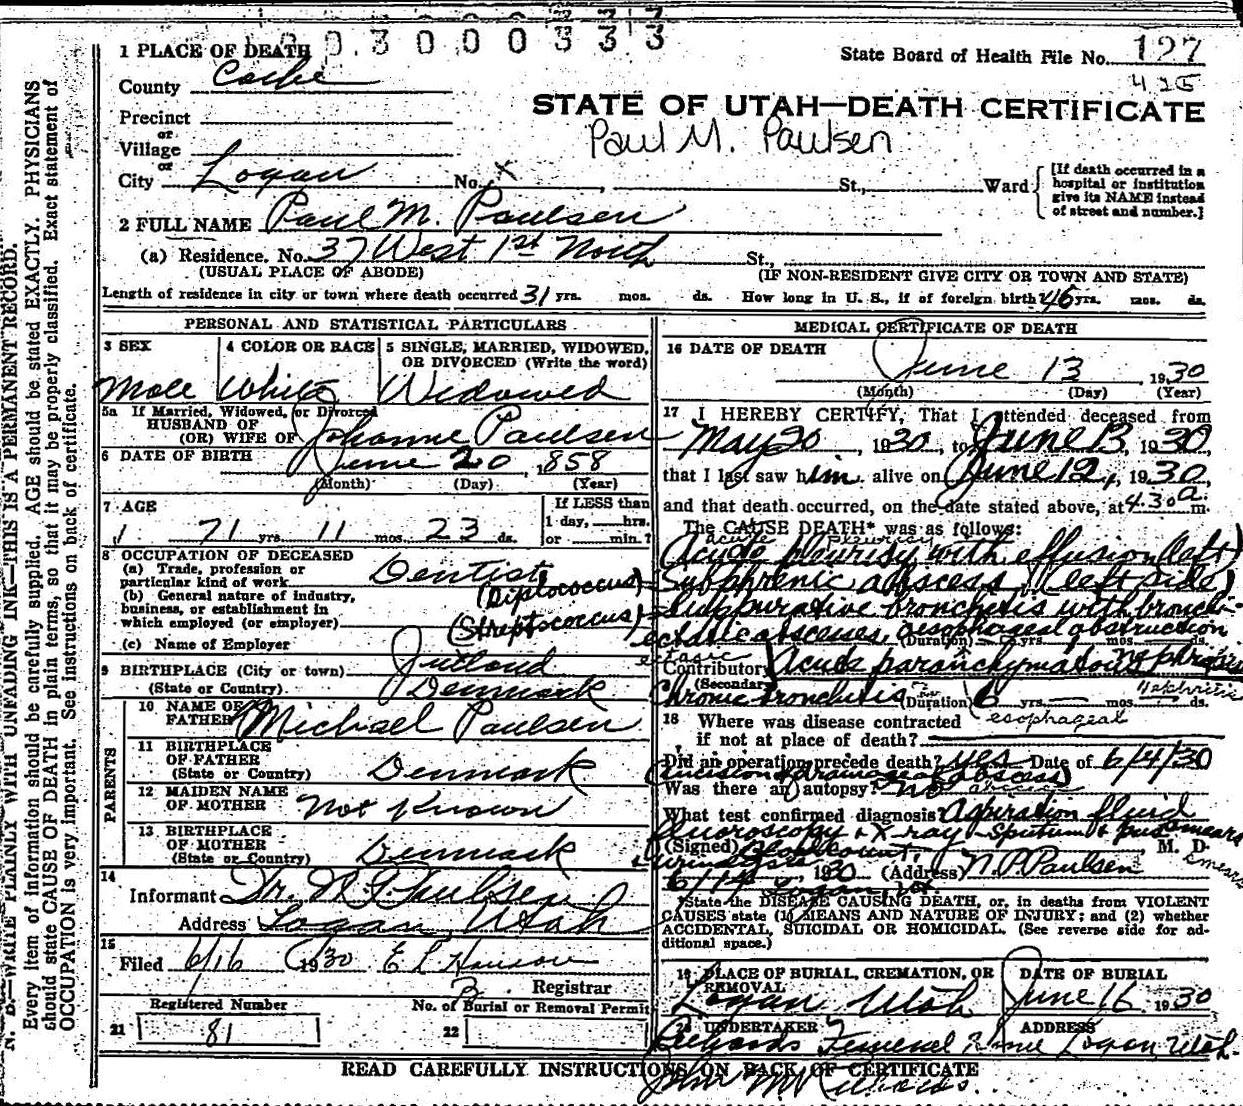 0.3 0 0 0 3 3 3
1 PLACE OF DEATH
State Board of Health File No. 127
425
County Cache
STATE OF UTAH—DEATH CERTIFICATE
Paul M. Paulsen
Precinct
or
Village
or
City Logan No. x St., Ward
[If death occurred in a
hospital or institution
give its NAME instead
of street and number.]
2 FULL NAME Paul M. Paulsen
(a) Residence. No. 37 West 1st North St.,
(USUAL PLACE OF ABODE) (IF NON-RESIDENT GIVE CITY OR TOWN AND STATE)
Length of residence in city or town where death occurred 31 yrs. mos. ds. How long in U. S., if of foreign birth? 46 yrs. mos. ds.
PERSONAL AND STATISTICAL PARTICULARS
3 SEX 4 COLOR OR RACE 5 SINGLE, MARRIED, WIDOWED,
OR DIVORCED (Write the word)
Male White Widowed
5a If Married, Widowed, or Divorced
HUSBAND OF
(OR) WIFE OF Johanne Paulsen
6 DATE OF BIRTH June 20, 1858
(Month) (Day) (Year)
7 AGE If LESS than
1 day, hrs.
71 yrs. 11 mos. 23 ds. or min.?
8 OCCUPATION OF DECEASED
(a) Trade, profession or
particular kind of work Dentist
(b) General nature of industry,
business, or establishment in
which employed (or employer)
(c) Name of Employer
9 BIRTHPLACE (City or town) Jutland
(State or Country) Denmark
PARENTS
10 NAME OF
FATHER Michael Paulsen
11 BIRTHPLACE
OF FATHER
(State or Country) Denmark
12 MAIDEN NAME
OF MOTHER Not Known
13 BIRTHPLACE
OF MOTHER
(State or Country) Denmark
14
Informant Dr. N. P. Paulsen
Address Logan, Utah
15
Filed 6/16 1930 E L Hanson
Registrar
Registered Number No. of Burial or Removal Permit
21 81 22
MEDICAL CERTIFICATE OF DEATH
16 DATE OF DEATH
June 13, 1930
(Month) (Day) (Year)
17 I HEREBY CERTIFY, That I attended deceased from
May 20, 1930, to June 13, 1930
that I last saw him alive on June 12, 1930,
and that death occurred, on the date stated above, at 4.30 a. m.
The CAUSE DEATH* was as follows:
acute pleurisy
Acute pleurisy with effusion (left)
(Diplococcus) Subphrenic abscess (left side)
(Streptococcus) Suppurative bronchitis with bronchi-
ectatic abscesses, esophageal obstruction
(Duration) yrs. mos. ds.
ectasic
Contributory Acute paranchymatous nephritis
(Secondary)
Chronic bronchitis (Duration) 6 yrs. mos. ds.
nephritis
18 Where was disease contracted esophageal
if not at place of death?
Did an operation precede death? yes Date of 6/4/30
(Incision & drainage of abscess)
Was there an autopsy? No abscess
What test confirmed diagnosis? Aspiration fluid
fluoroscopy + X-ray - Sputum + pus smears
(Signed) Blood count, M. D.
smears
6/14 1930 (Address) N. P. Paulsen
Logan, Ut.
*State the DISEASE CAUSING DEATH, or, in deaths from VIOLENT
CAUSES state (1) MEANS AND NATURE OF INJURY; and (2) whether
ACCIDENTAL, SUICIDAL OR HOMICIDAL. (See reverse side for ad-
ditional space.)
19 PLACE OF BURIAL, CREMATION, OR
REMOVAL
Logan Utah
DATE OF BURIAL
June 16, 1930
20 UNDERTAKER ADDRESS
Richards Funeral Home Logan, Utah.
John M Richards.
READ CAREFULLY INSTRUCTIONS ON BACK OF CERTIFICATE
N. B.—WRITE PLAINLY WITH UNFADING INK—THIS IS A PERMANENT RECORD.
Every item of information should be carefully supplied. AGE should be stated EXACTLY. PHYSICIANS
should state CAUSE OF DEATH in plain terms, so that it may be properly classified. Exact statement of
OCCUPATION is very important. See instructions on back of certificate.